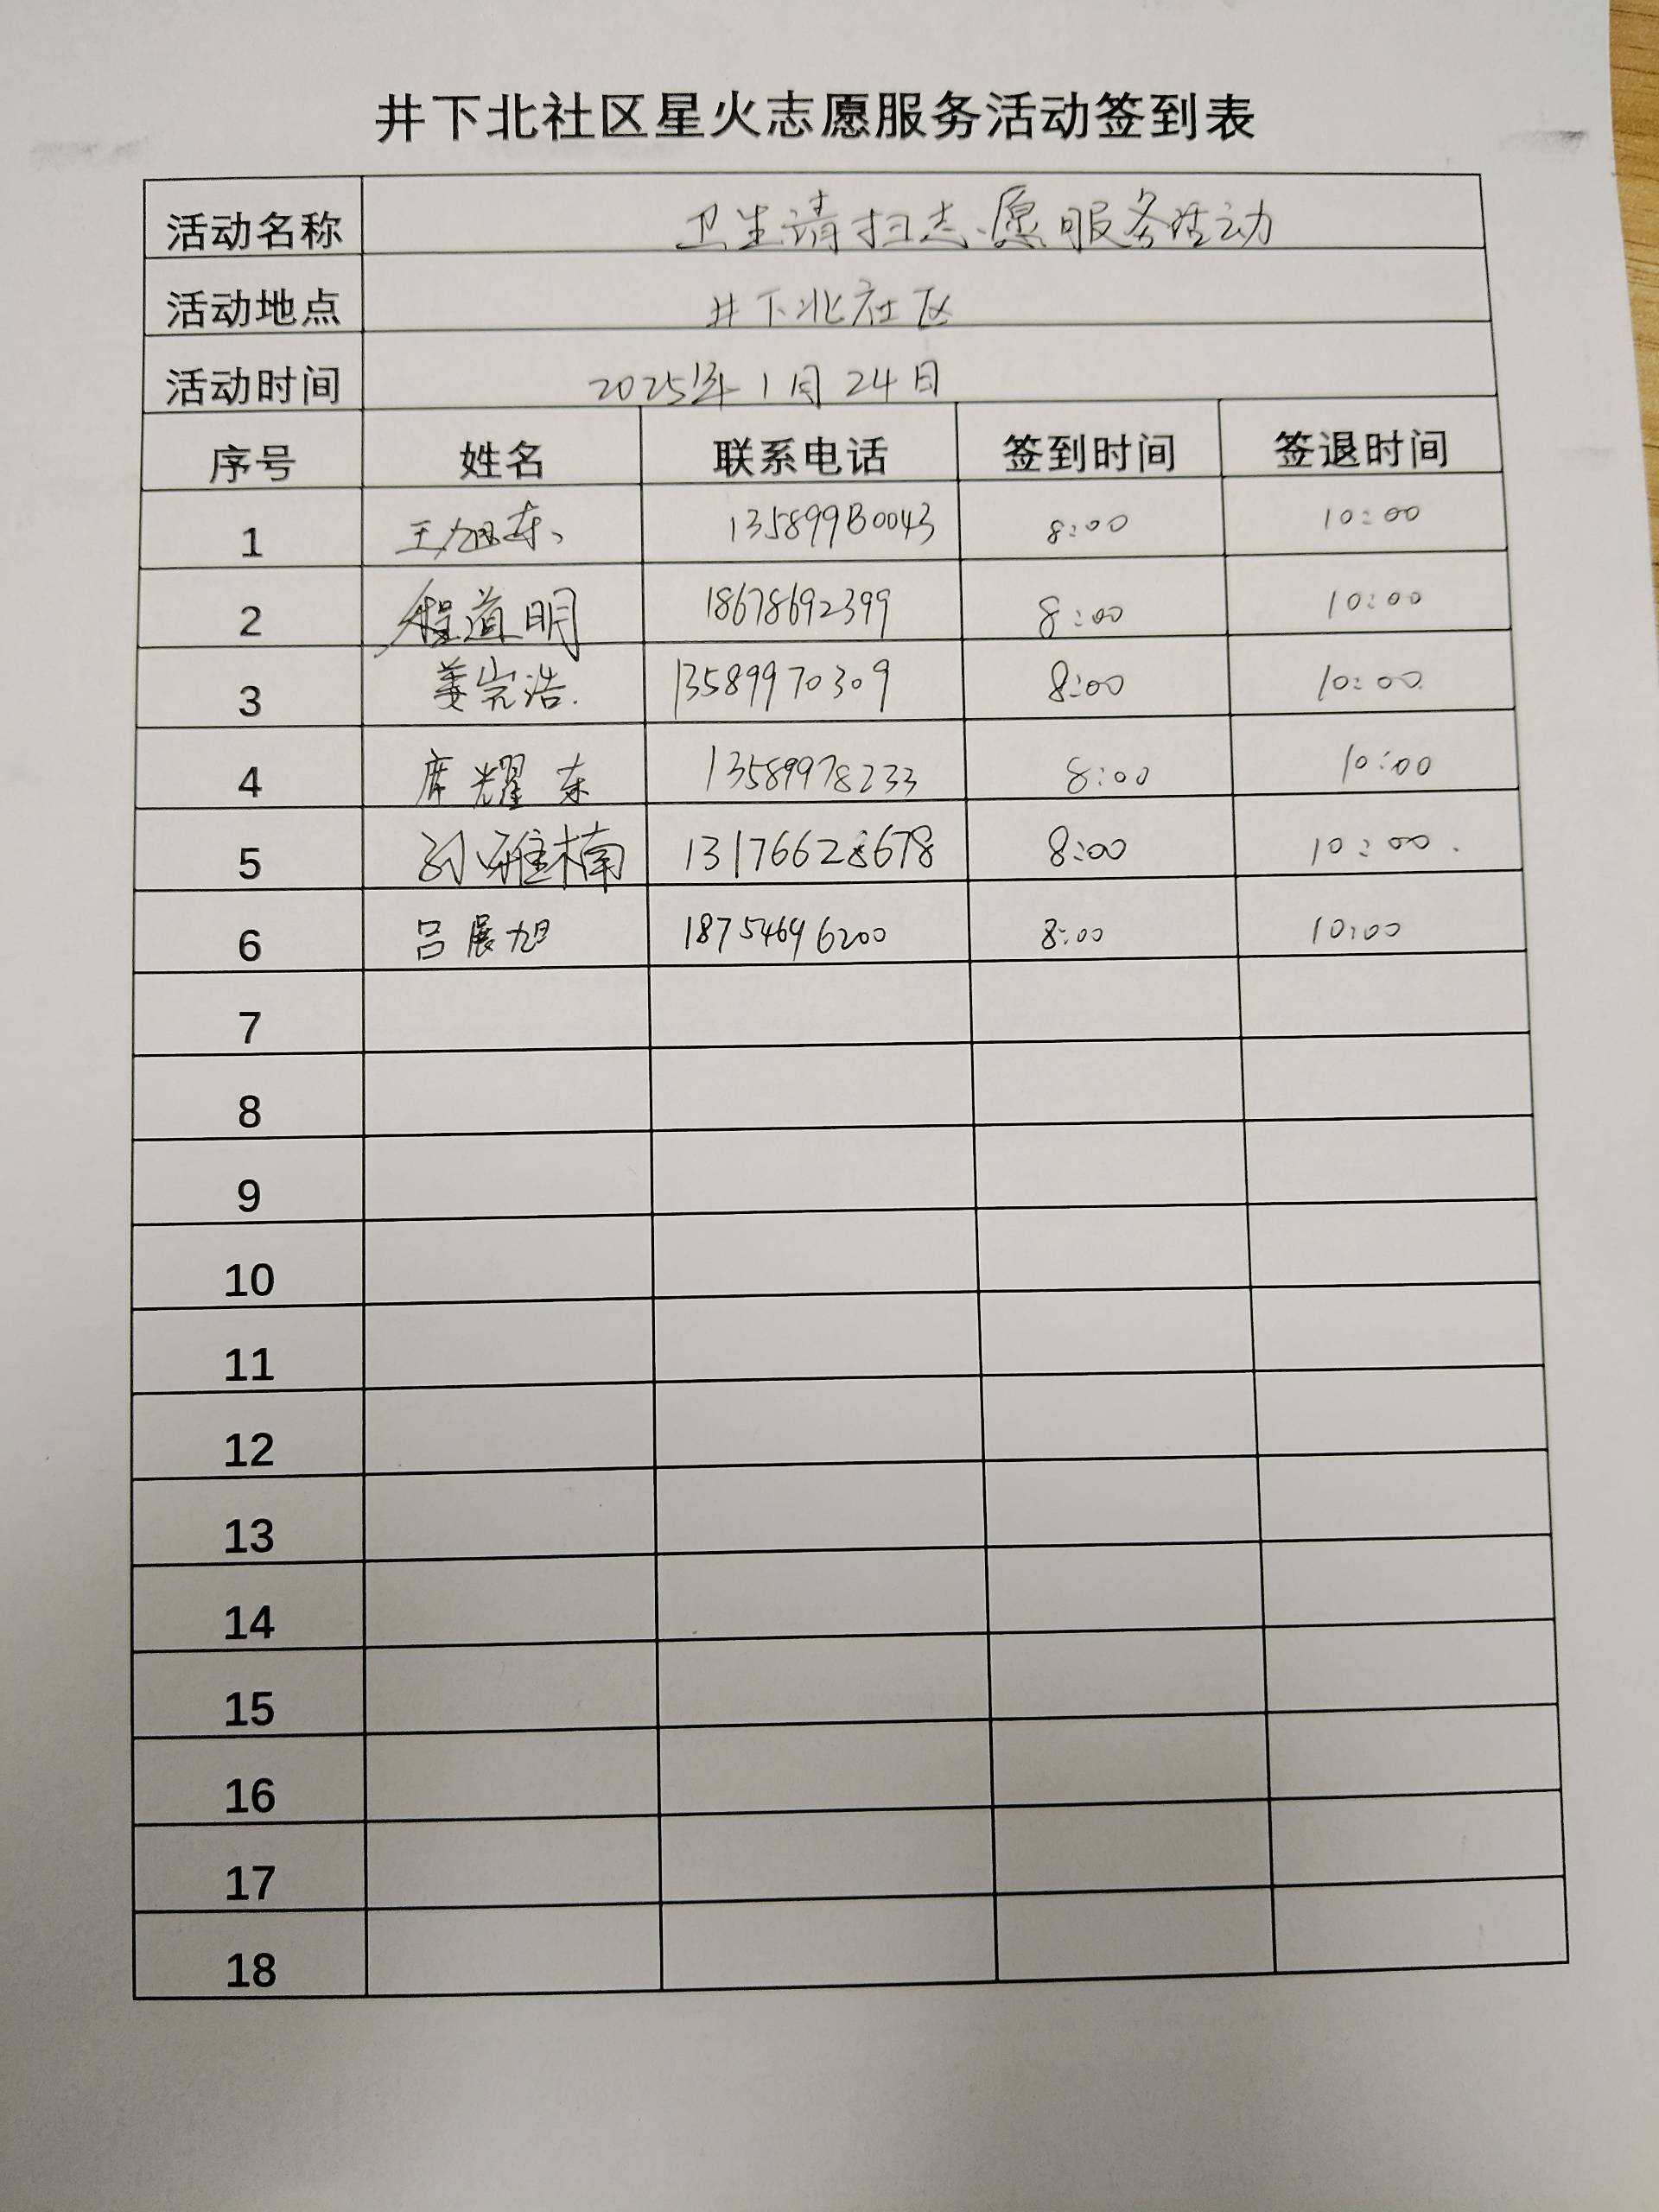 井下北社区星火志愿服务活动签到表
活动名称 卫生请扫志愿服务活动
活动地点 井下北社区
活动时间 2025年1月24日
序号 姓名 联系电话 签到时间 签退时间
1 王旭东、 13589980043 8:00 10:00
2 程道明 18678692399 8:00 10:00
3 姜宗浩. 13589970309 8:00 10:00
4 席耀东 13589978233 8:00 10:00
5 孙雅楠 13176628678 8:00 10:00.
6 吕展旭 18754696200 8:00 10:00
7
8
9
10
11
12
13
14
15
16
17
18